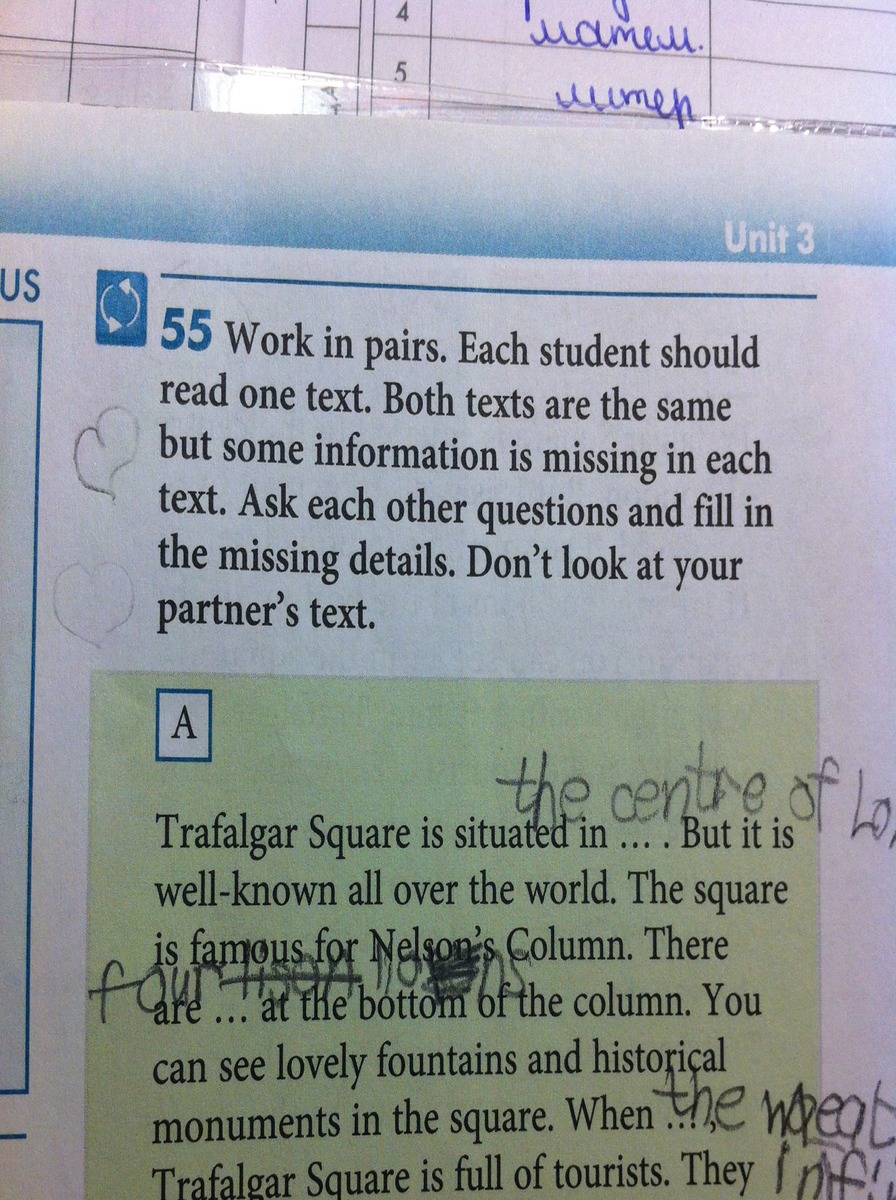 4
матем.
5
литер
Unit 3
US
55 Work in pairs. Each student should
read one text. Both texts are the same
but some information is missing in each
text. Ask each other questions and fill in
the missing details. Don't look at your
partner's text.
A
the centre of Lo
Trafalgar Square is situated in ... . But it is
well-known all over the world. The square
is famous for Nelson's Column. There
four
are ... at the bottom of the column. You
can see lovely fountains and historical
monuments in the square. When ...,
the
Trafalgar Square is full of tourists. They